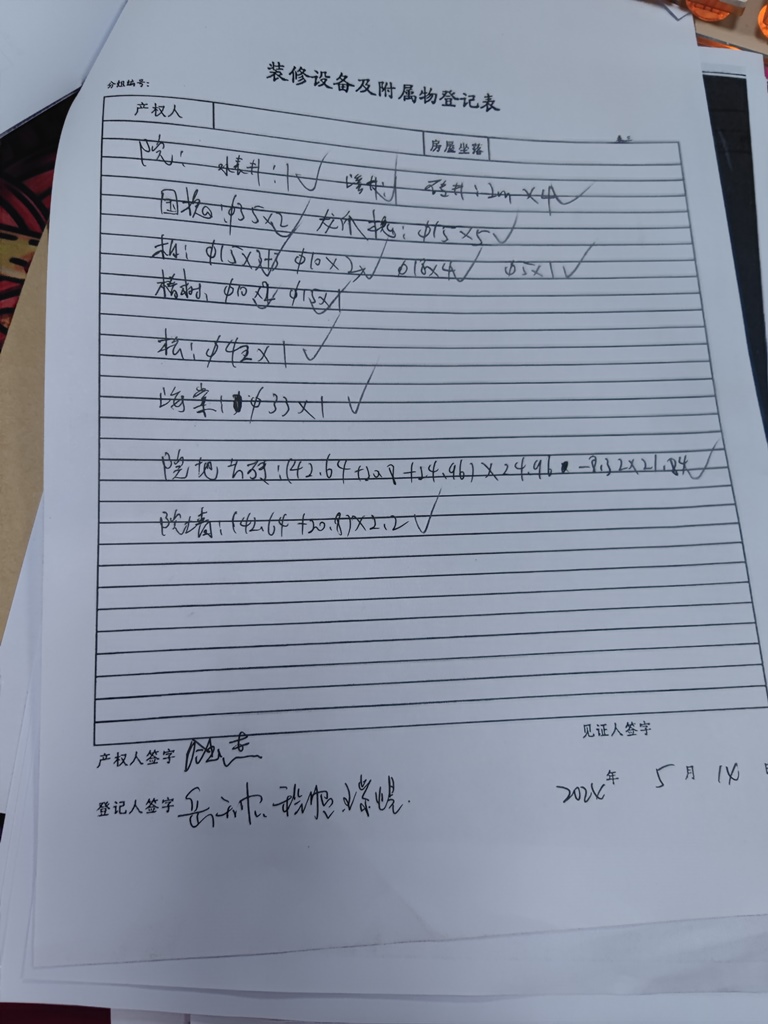 装修设备及附属物登记表
分组编号：
产权人
房屋坐落
院： 水表井：1✓ 渗井：1 砖井：2m×4✓
国槐：φ35×2✓ 龙爪槐：φ15×5✓
柏：φ15×3✓ φ10×2✓ φ18×4✓ φ5×1✓
树：φ10×2 φ15×1
松：φ42×1✓
海棠：φ33×1✓
院地：(42.64+20.8+14.96)×24.96-8.32×21.84✓
院墙：(42.64+20.8)×2.2✓
见证人签字
产权人签字
登记人签字
2024年5月14日